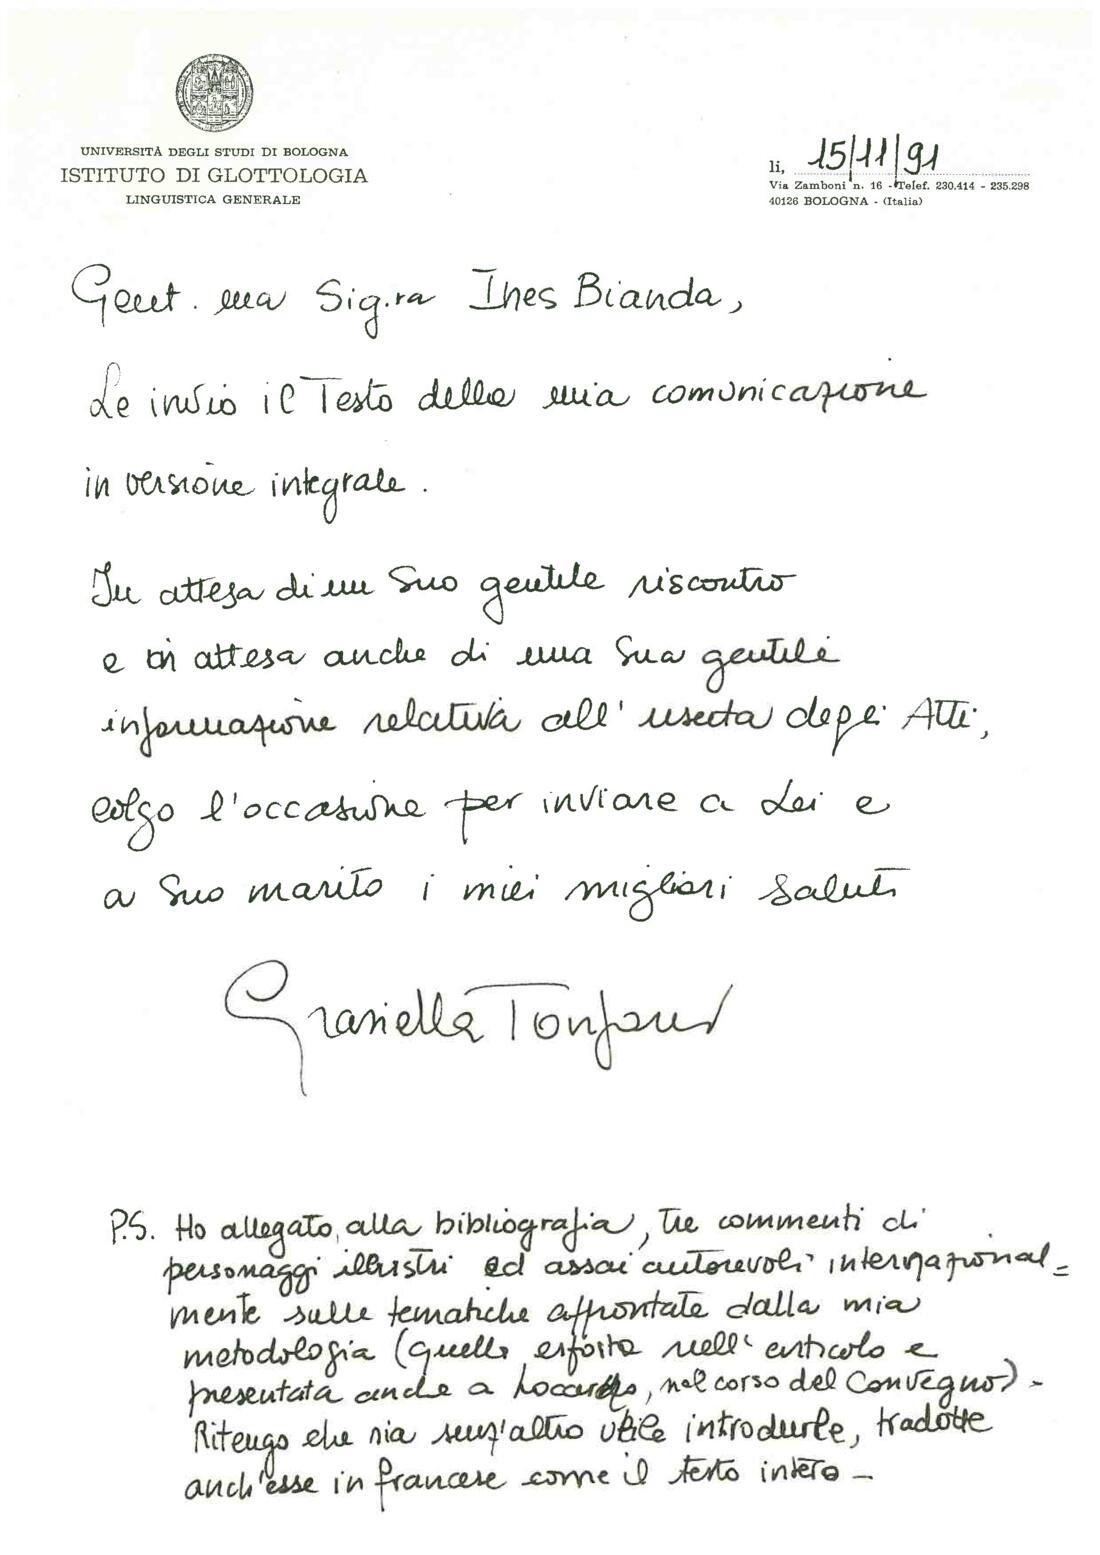 UNIVERSITÀ DEGLI STUDI DI BOLOGNA
ISTITUTO DI GLOTTOLOGIA
LINGUISTICA GENERALE
li, 15/11/91
Via Zamboni n. 16 - Telef. 230.414 - 235.298
40126 BOLOGNA - (Italia)
Gent.ma Sig.ra Ines Bianda,
Le invio il Testo della mia comunicazione
in versione integrale.
In attesa di un Suo gentile riscontro
e in attesa anche di una Sua gentile
informazione relativa all'uscita degli Atti,
colgo l'occasione per inviare a Lei e
a Suo marito i miei migliori saluti
Graziella Tonfoni
P.S. Ho allegato, alla bibliografia, tre commenti di
personaggi illustri ed assai autorevoli internazional=
mente sulle tematiche affrontate dalla mia
metodologia (quella esposta nell'articolo e
presentata anche a Locarno, nel corso del Convegno) -
Ritengo che sia senz'altro utile introdurle, tradotte
anch'esse in francese come il testo intero -